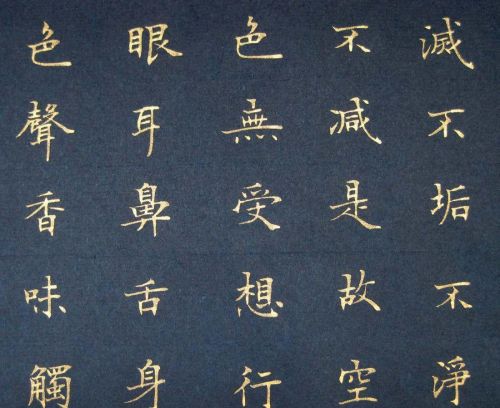 滅不垢不淨
不減是故空
色無受想行
眼耳鼻舌身
色聲香味觸